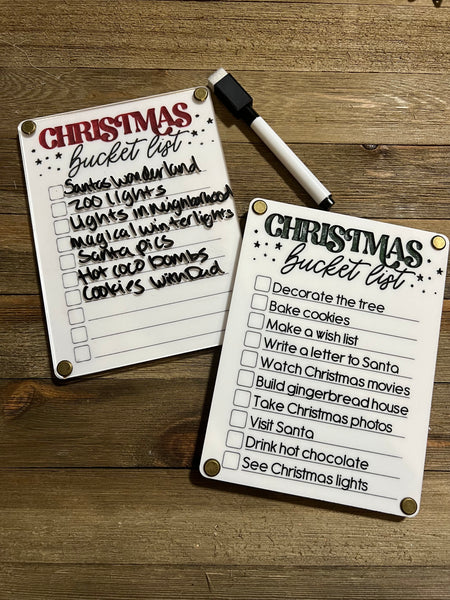 CHRISTMAS
bucket list
Santas Wonderland
Zoo Lights
Lights in Neighborhood
magical winter lights
Santa pics
Hot coco bombs
Cookies with Dad
CHRISTMAS
bucket list
Decorate the tree
Bake cookies
Make a wish list
Write a letter to Santa
Watch Christmas movies
Build gingerbread house
Take Christmas photos
Visit Santa
Drink hot chocolate
See Christmas lights